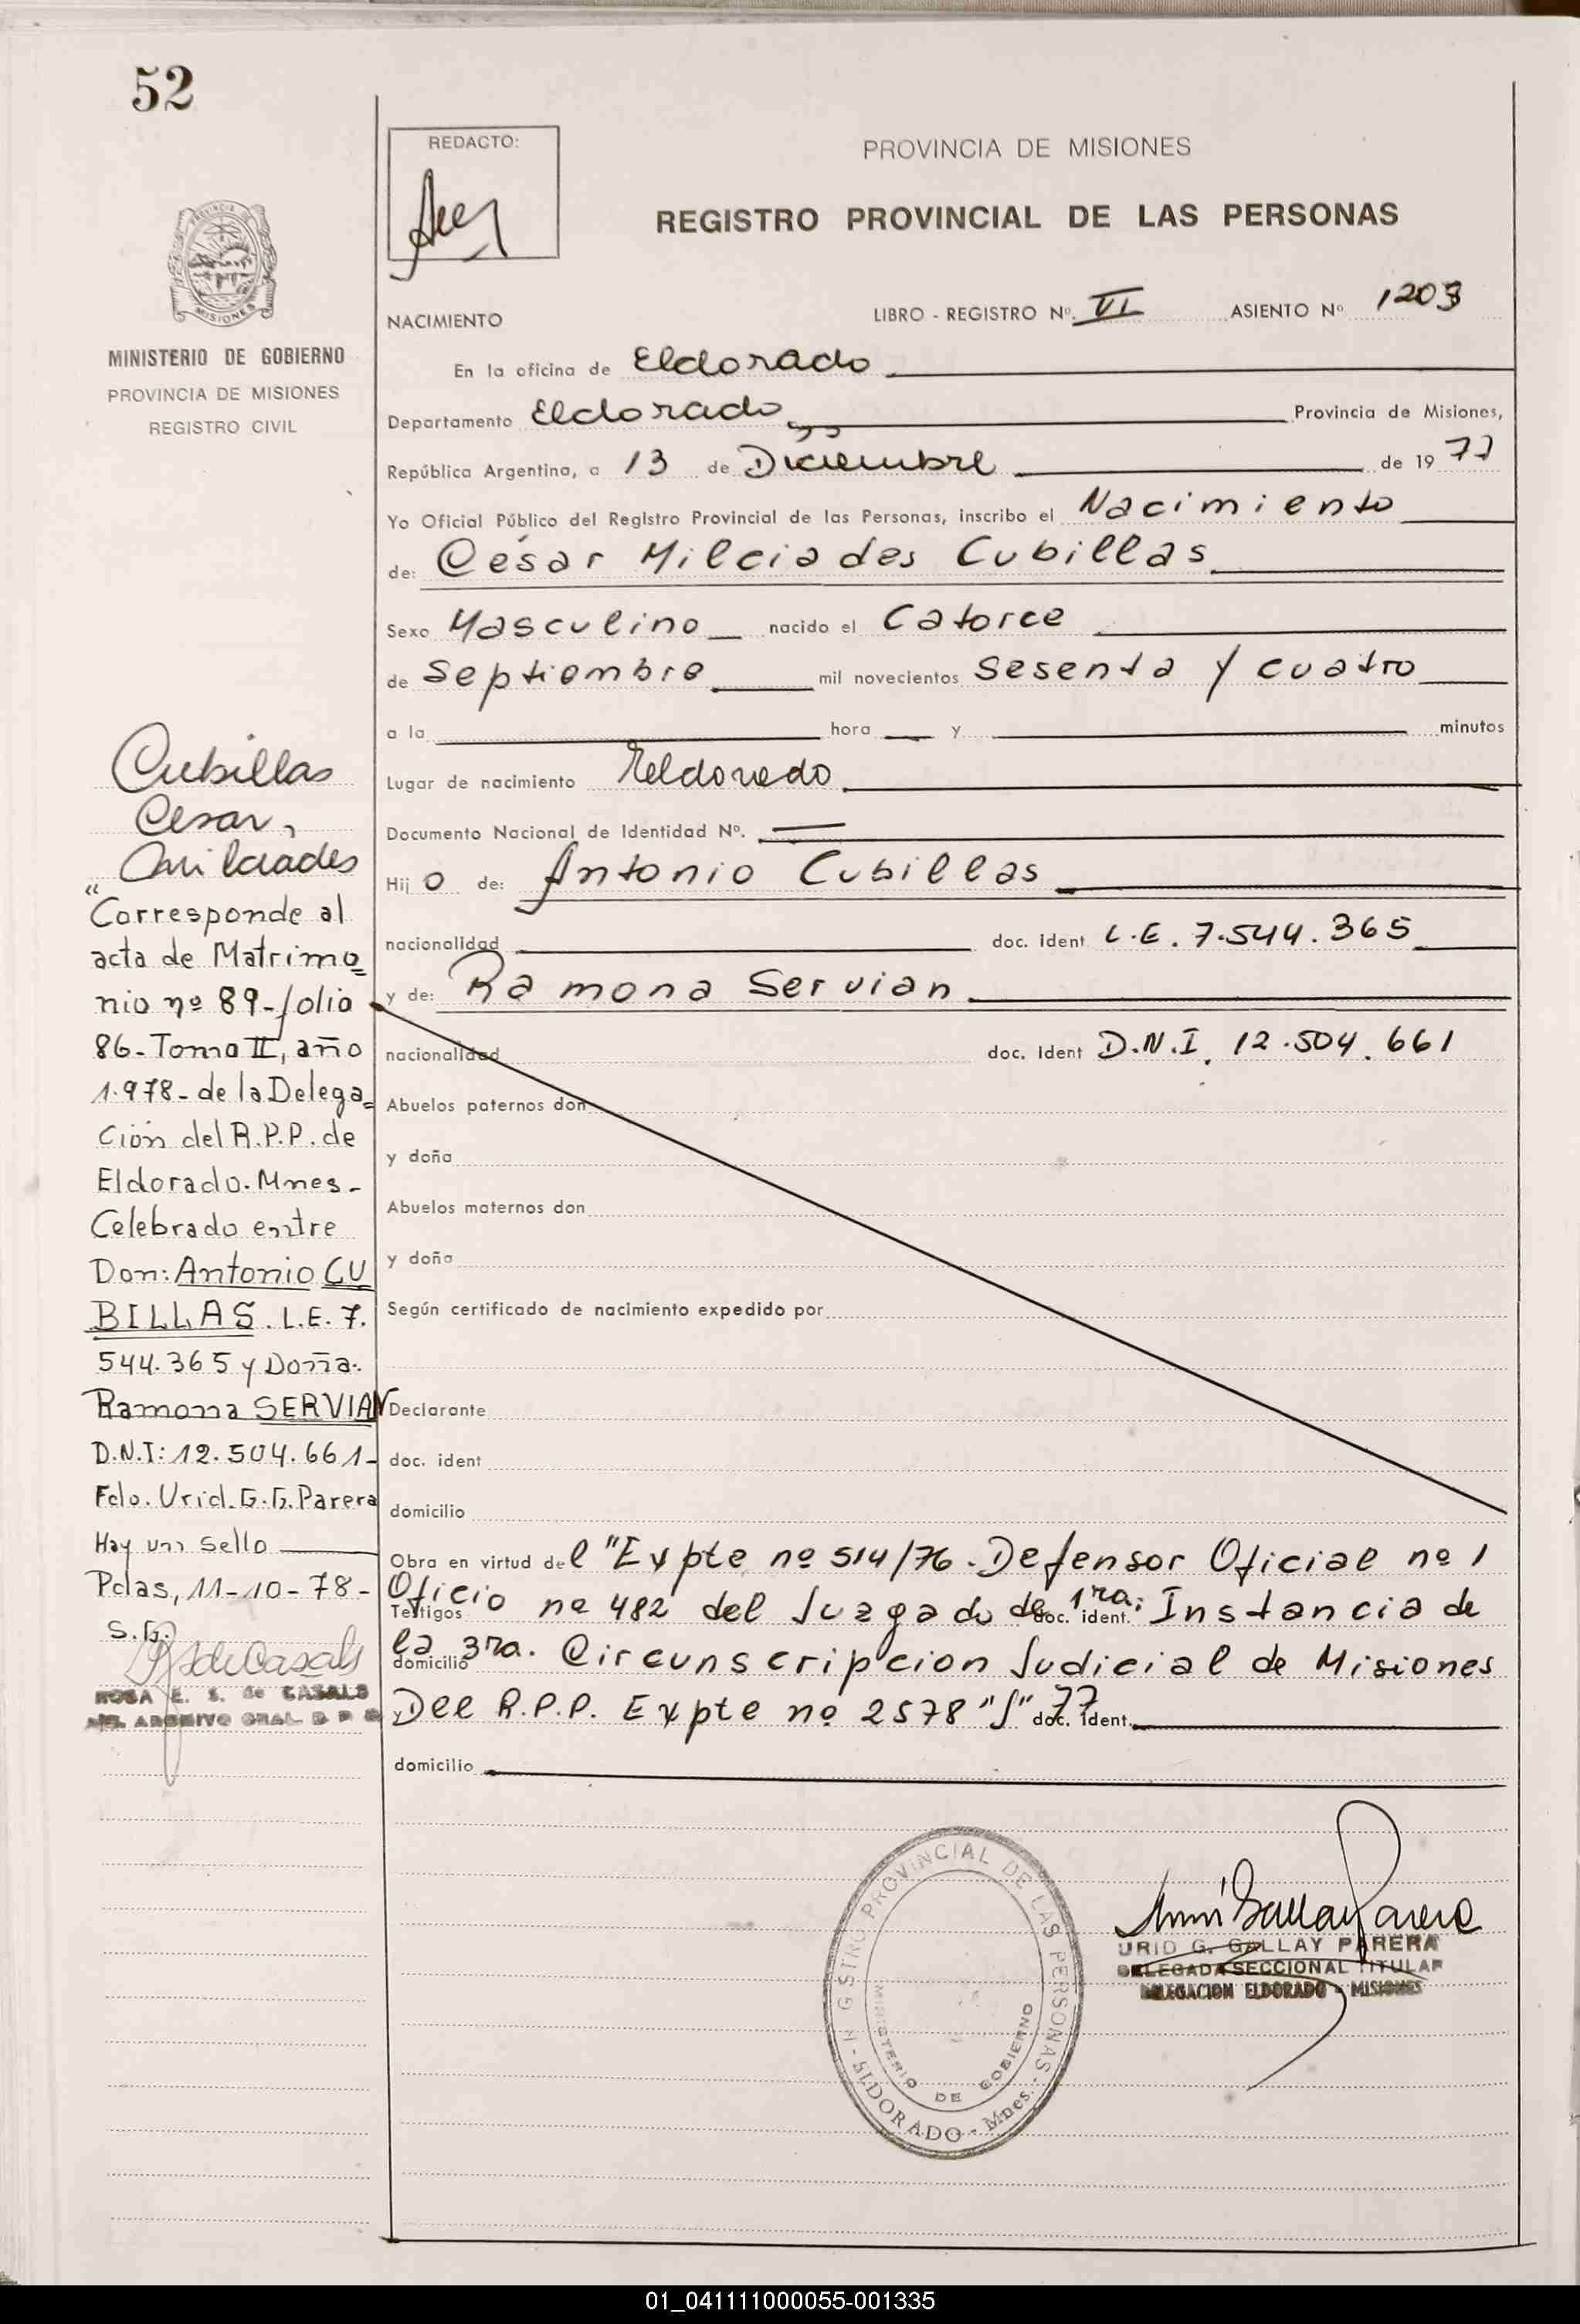 52
REDACTO:
PROVINCIA DE MISIONES
REGISTRO PROVINCIAL DE LAS PERSONAS
PROVINCIA DE
MISIONES
MINISTERIO DE GOBIERNO
PROVINCIA DE MISIONES
REGISTRO CIVIL
NACIMIENTO LIBRO - REGISTRO Nº. VI ASIENTO Nº 1203
En la oficina de Eldorado
Departamento Eldorado Provincia de Misiones,
República Argentina, a 13 de Diciembre de 19 77
Yo Oficial Público del Registro Provincial de las Personas, inscribo el Nacimiento
de: César Milciades Cubillas
Sexo Masculino nacido el Catorce
de Septiembre mil novecientos Sesenta y cuatro
a la hora y minutos
Lugar de nacimiento Eldorado
Documento Nacional de Identidad Nº.
Hij o de: Antonio Cubillas
nacionalidad doc. ident L.E. 7.544.365
y de: Ramona Servian
nacionalidad doc. ident D.N.I. 12.504.661
Abuelos paternos don
y doña
Abuelos maternos don
y doña
Según certificado de nacimiento expedido por
Declarante
doc. ident
domicilio
Obra en virtud del "Expte nº 514/76. Defensor Oficial nº 1
Testigos Oficio nº 482 del Juzgado de doc. ident. 1ra. Instancia de
domicilio la 3ra. Circunscripcion Judicial de Misiones
Del R.P.P. Expte nº 2578 "S" 77 doc. ident.
domicilio
Cubillas
Cesar,
Milciades
"Corresponde al
acta de Matrimo=
nio nº 89-folio
86-Tomo II, año
1.978- de la Delega=
ción del R.P.P. de
Eldorado. Mnes-
Celebrado entre
Don: Antonio CU
BILLAS. L.E. 7.
544.365 y Doña.
Ramona SERVIAN
D.N.I: 12.504.661-
Fdo. Urid. G. G. Parera
Hay un sello
Pdas, 11-10-78-
S.G.
ROSA E. S. de CASALS
ARCHIVO GRAL
PROVINCIAL DE LAS PERSONAS
MINISTERIO DE GOBIERNO
ELDORADO - Mnes.
URID G. GALLAY PARERA
DELEGADA SECCIONAL TITULAR
DELEGACION ELDORADO - MISIONES
01_041111000055-001335